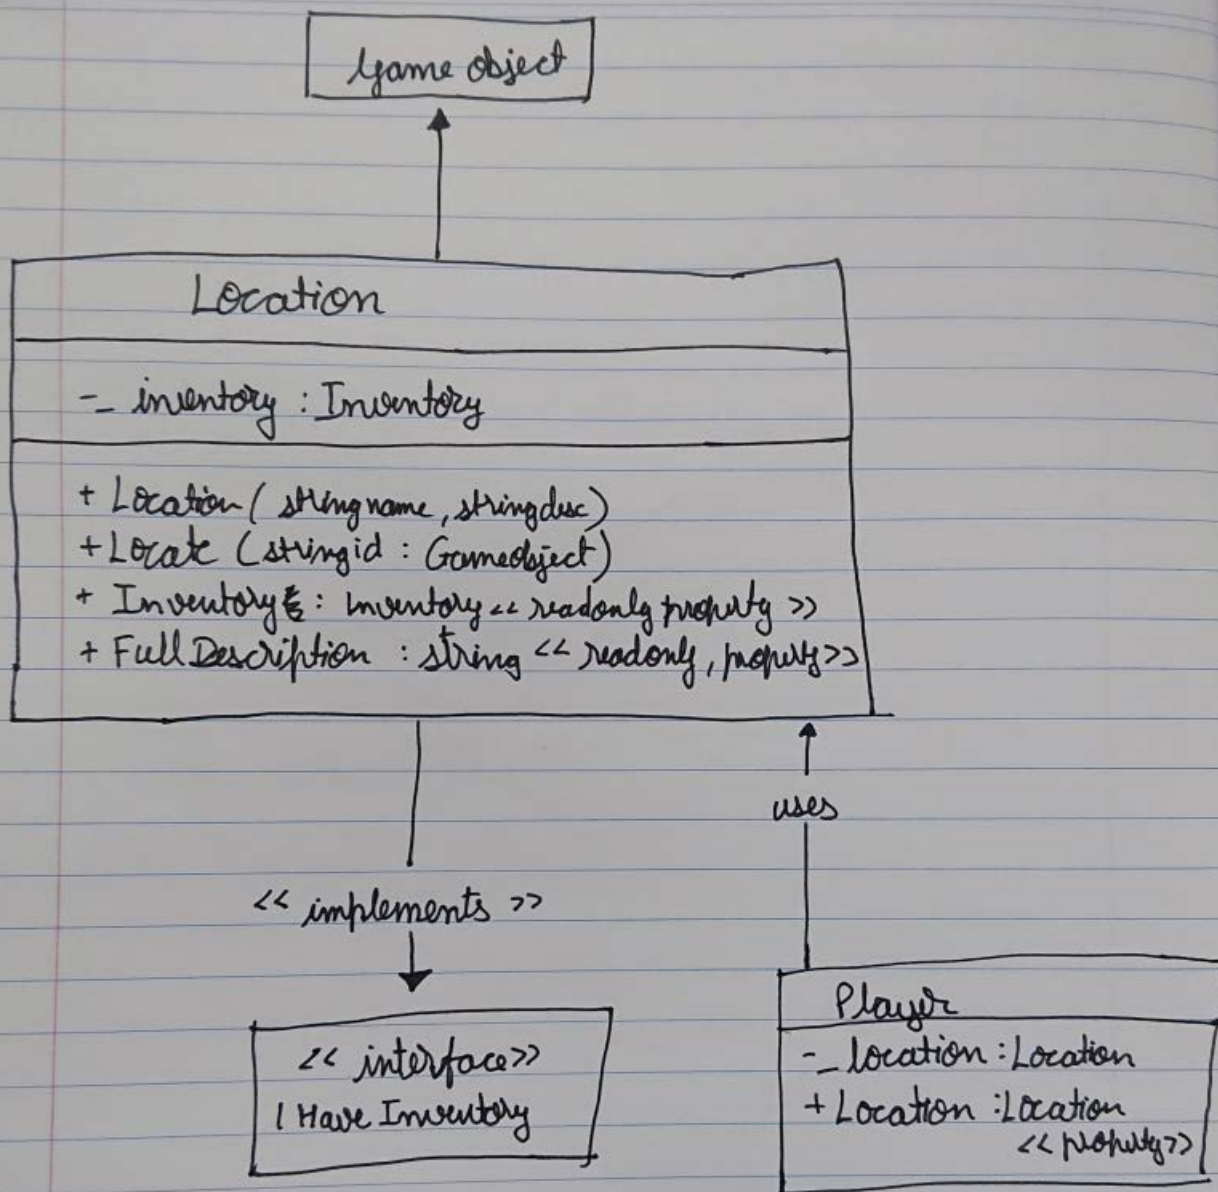 Game object
Location
-_ inventory : Inventory
+ Location ( string name, string desc)
+ Locate (string id : Gameobject)
+ Inventory : Inventory << readonly property >>
+ Full Description : string << readonly, property >>
uses
<< implements >>
<< interface >>
I Have Inventory
Player
-_ location : Location
+ Location : Location
<< property >>